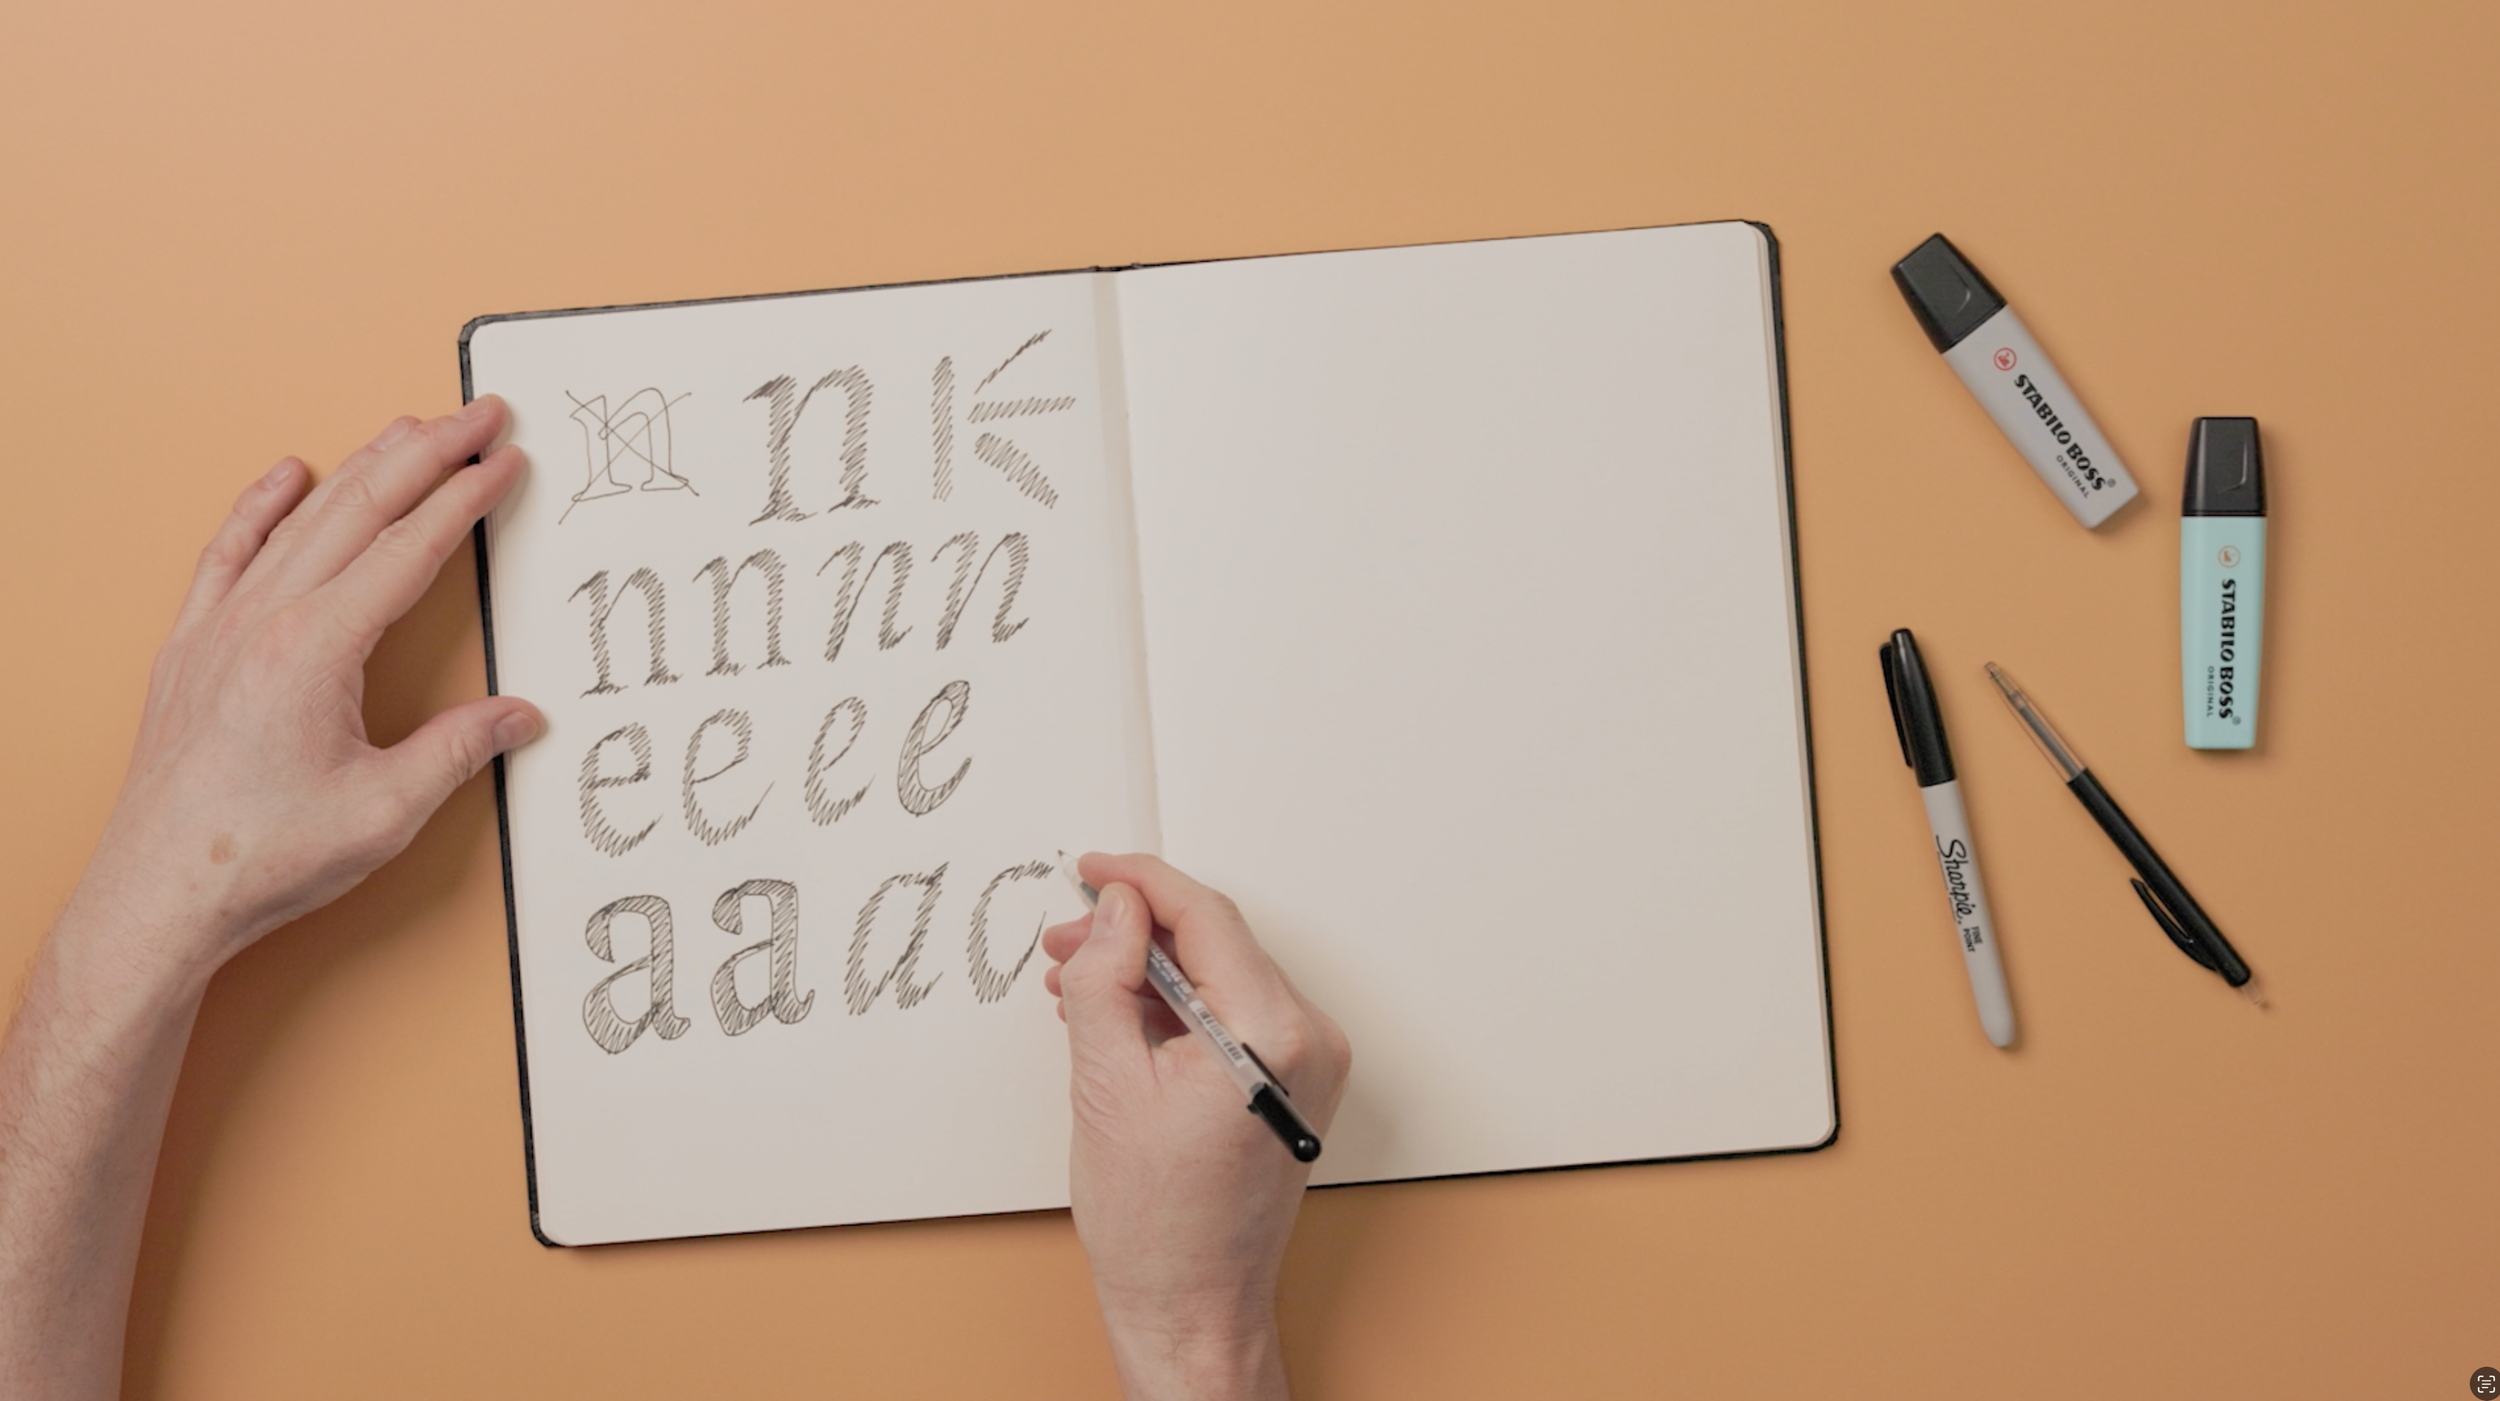 n n
n n n n
e e e e
a a a c
STABILO BOSS®
ORIGINAL
STABILO BOSS®
ORIGINAL
Sharpie.
FINE
POINT